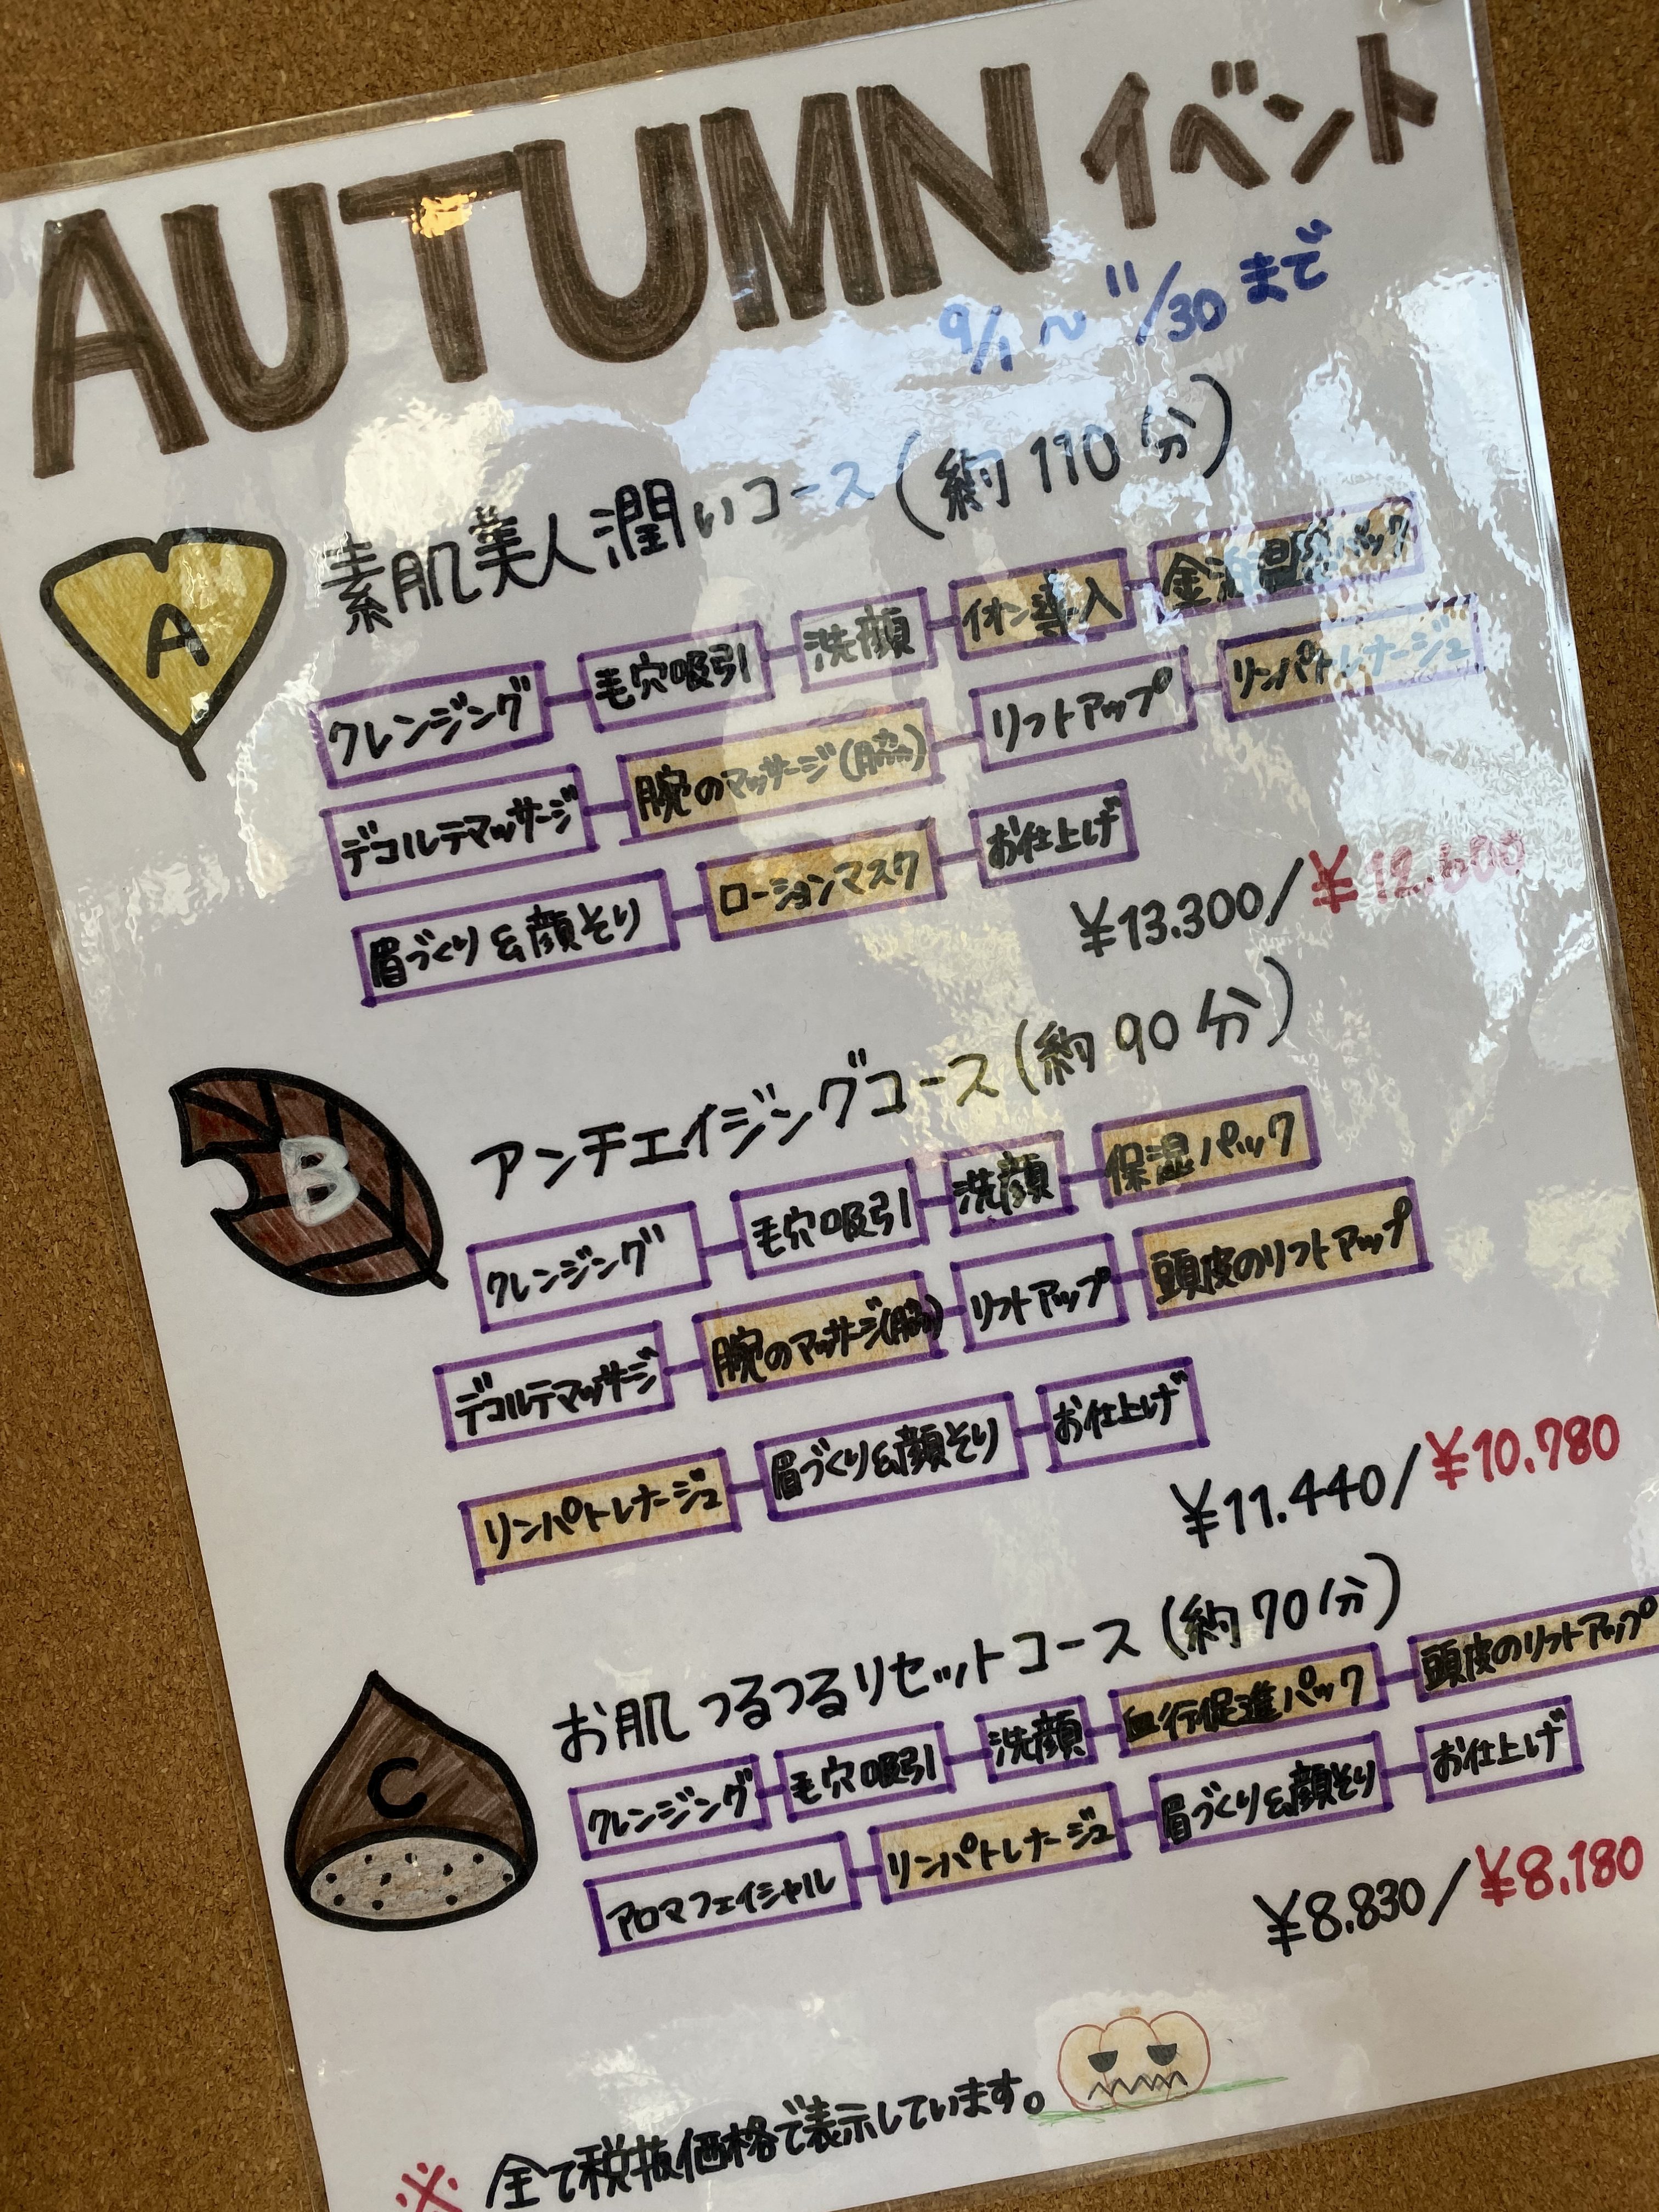 AUTUMN イベント
9/1 ~ 11/30 まで
A
素肌美人潤いコース(約110分)
クレンジング 毛穴吸引 洗顔 イオン導入 パック
デコルテマッサージ 腕のマッサージ(脇) リフトアップ リンパドレナージュ
眉づくり&顔そり ローションマスク お仕上げ
¥13.300/¥12.600
B
アンチエイジングコース(約90分)
クレンジング 毛穴吸引 洗顔 保湿パック
デコルテマッサージ 腕のマッサージ(脇) リフトアップ 頭皮のリフトアップ
リンパトレナージュ 眉づくり&顔そり お仕上げ
¥11.440/¥10.780
C
お肌つるつるリセットコース(約70分)
クレンジング 毛穴吸引 洗顔 血行促進パック 頭皮のリフトアップ
アロマフェイシャル リンパトレナージュ 眉づくり&顔そり お仕上げ
¥8.830/¥8.180
※ 全て税抜価格で表示しています。